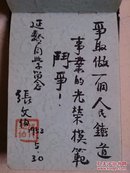 爭取做一個人民鐵道
事業的光榮模範
鬥爭！
延慰同学留念
張文
5.30